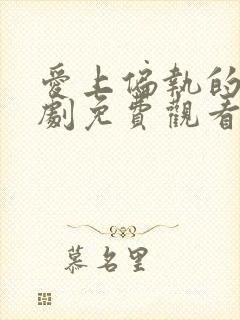 愛上偏執的
劇免費觀看
慕名里